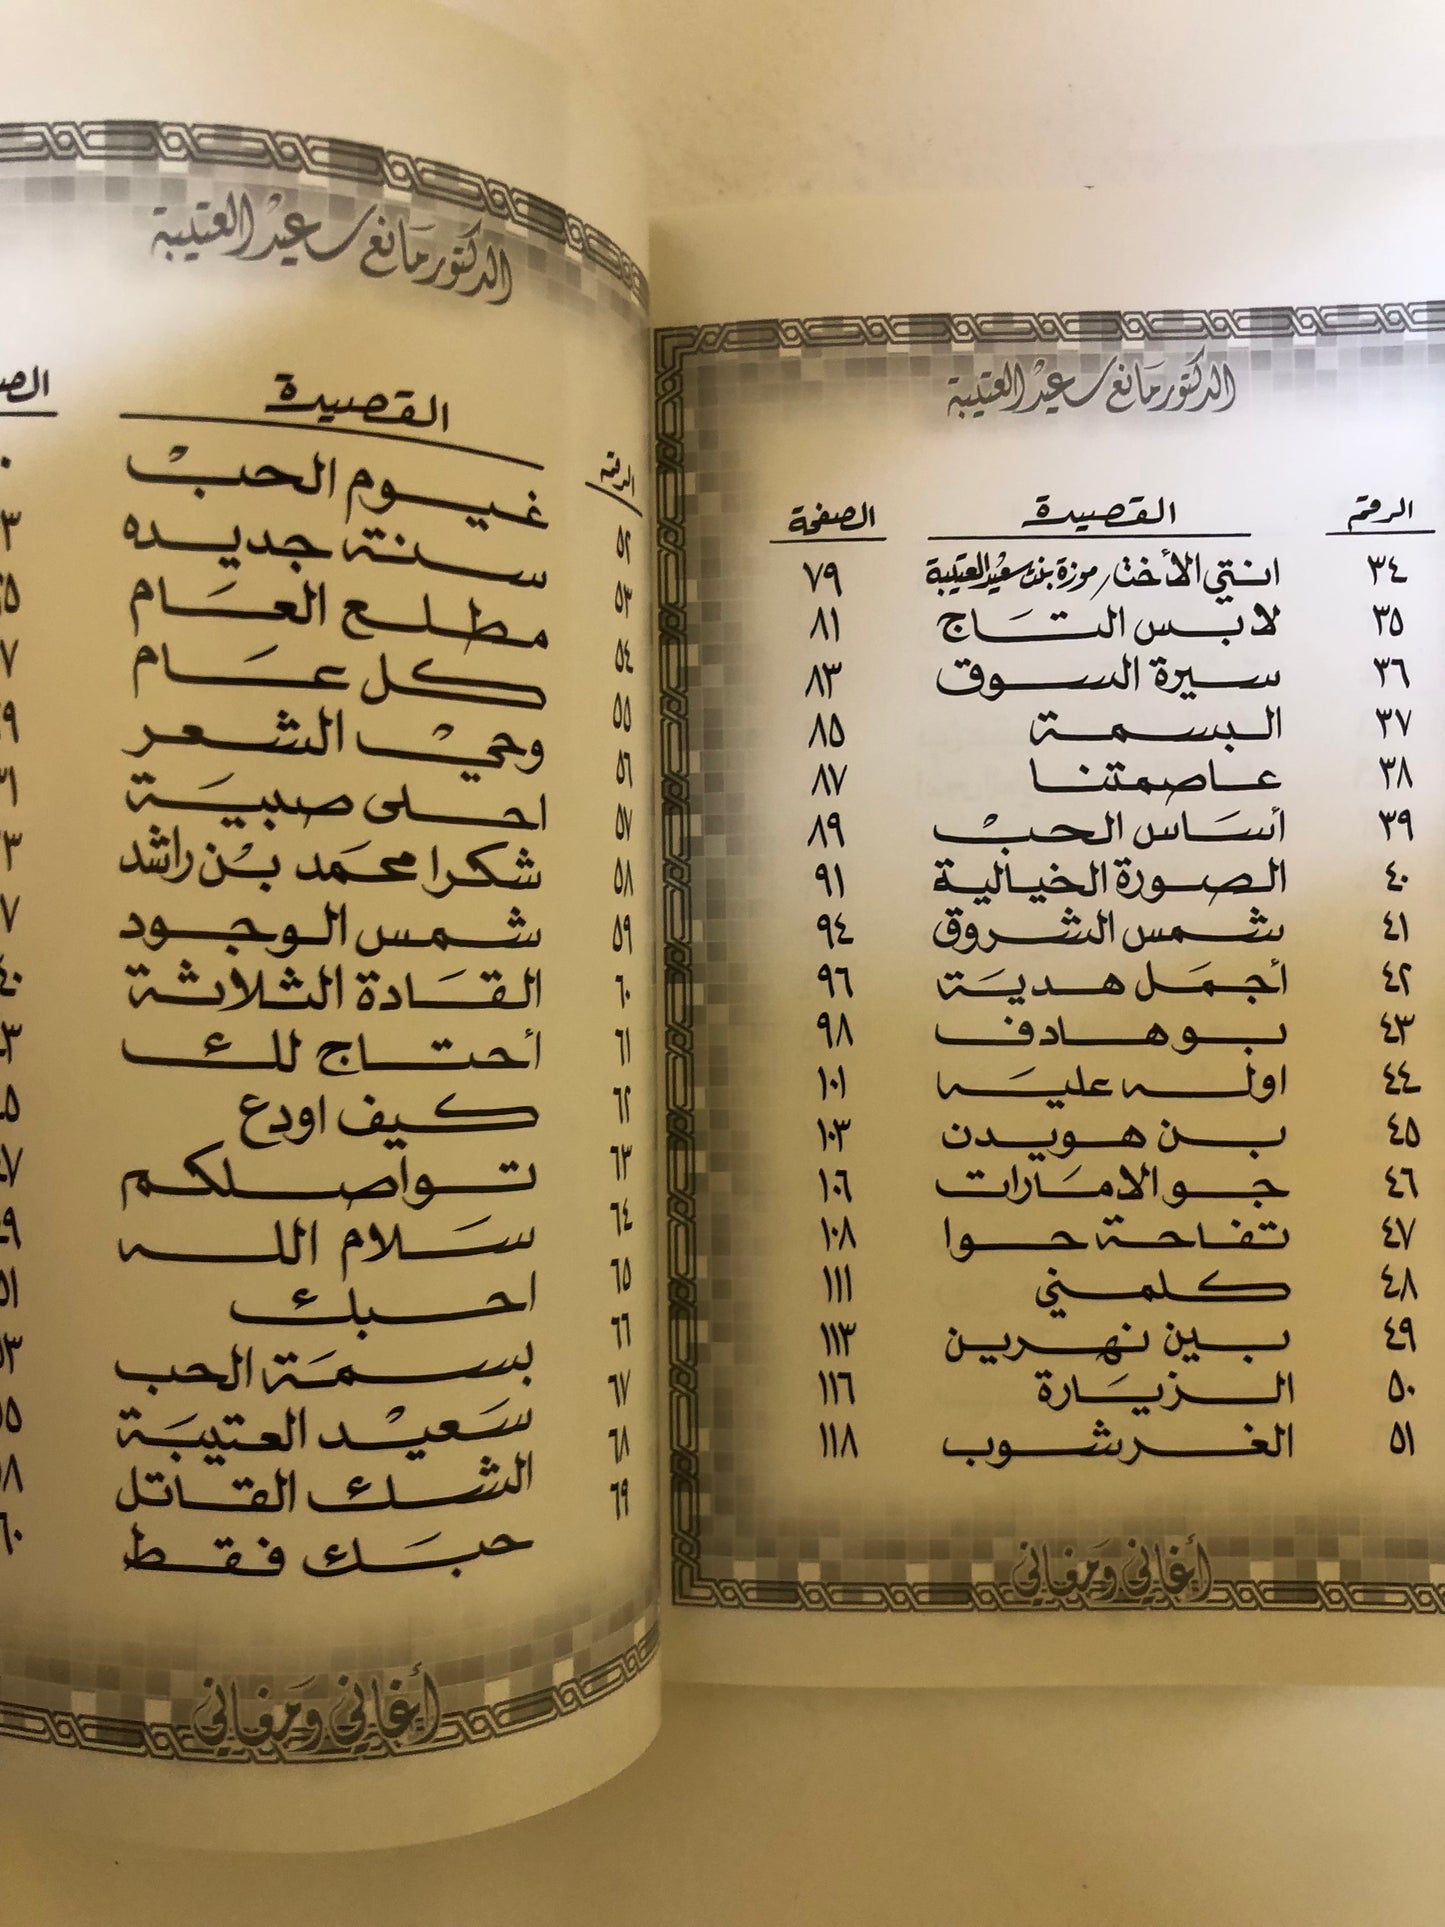 الدكتور مانع سعيد العتيبة
الرقم القصيدة الصفحة
٣٤ انتي الأخت / موزة بنت سعيد العتيبة ٧٩
٣٥ لابس التاج ٨١
٣٦ سيرة السوق ٨٣
٣٧ البسمة ٨٥
٣٨ عاصمتنا ٨٧
٣٩ أساس الحب ٨٩
٤٠ الصورة الخيالية ٩١
٤١ شمس الشروق ٩٤
٤٢ أجمل هدية ٩٦
٤٣ بو هادف ٩٨
٤٤ اوله عليه ١٠١
٤٥ بن هويدن ١٠٣
٤٦ جو الامارات ١٠٦
٤٧ تفاحة حوا ١٠٨
٤٨ كلمني ١١١
٤٩ بين نهرين ١١٣
٥٠ الزيارة ١١٦
٥١ الغرشوب ١١٨
أغاني ومغاني
الدكتور مانع سعيد العتيبة
الرقم القصيدة
٥٢ غيوم الحب
٥٣ سنة جديده
٥٤ مطلع العام
٥٥ كل عام
٥٦ وحي الشعر
٥٧ احلى صبية
٥٨ شكرا محمد بن راشد
٥٩ شمس الوجود
٦٠ القادة الثلاثة
٦١ أحتاج لك
٦٢ كيف اودع
٦٣ تواصلكم
٦٤ سلام الله
٦٥ احبك
٦٦ بسمة الحب
٦٧ سعيد العتيبة
٦٨ الشك القاتل
٦٩ حبك فقط
أغاني ومغاني